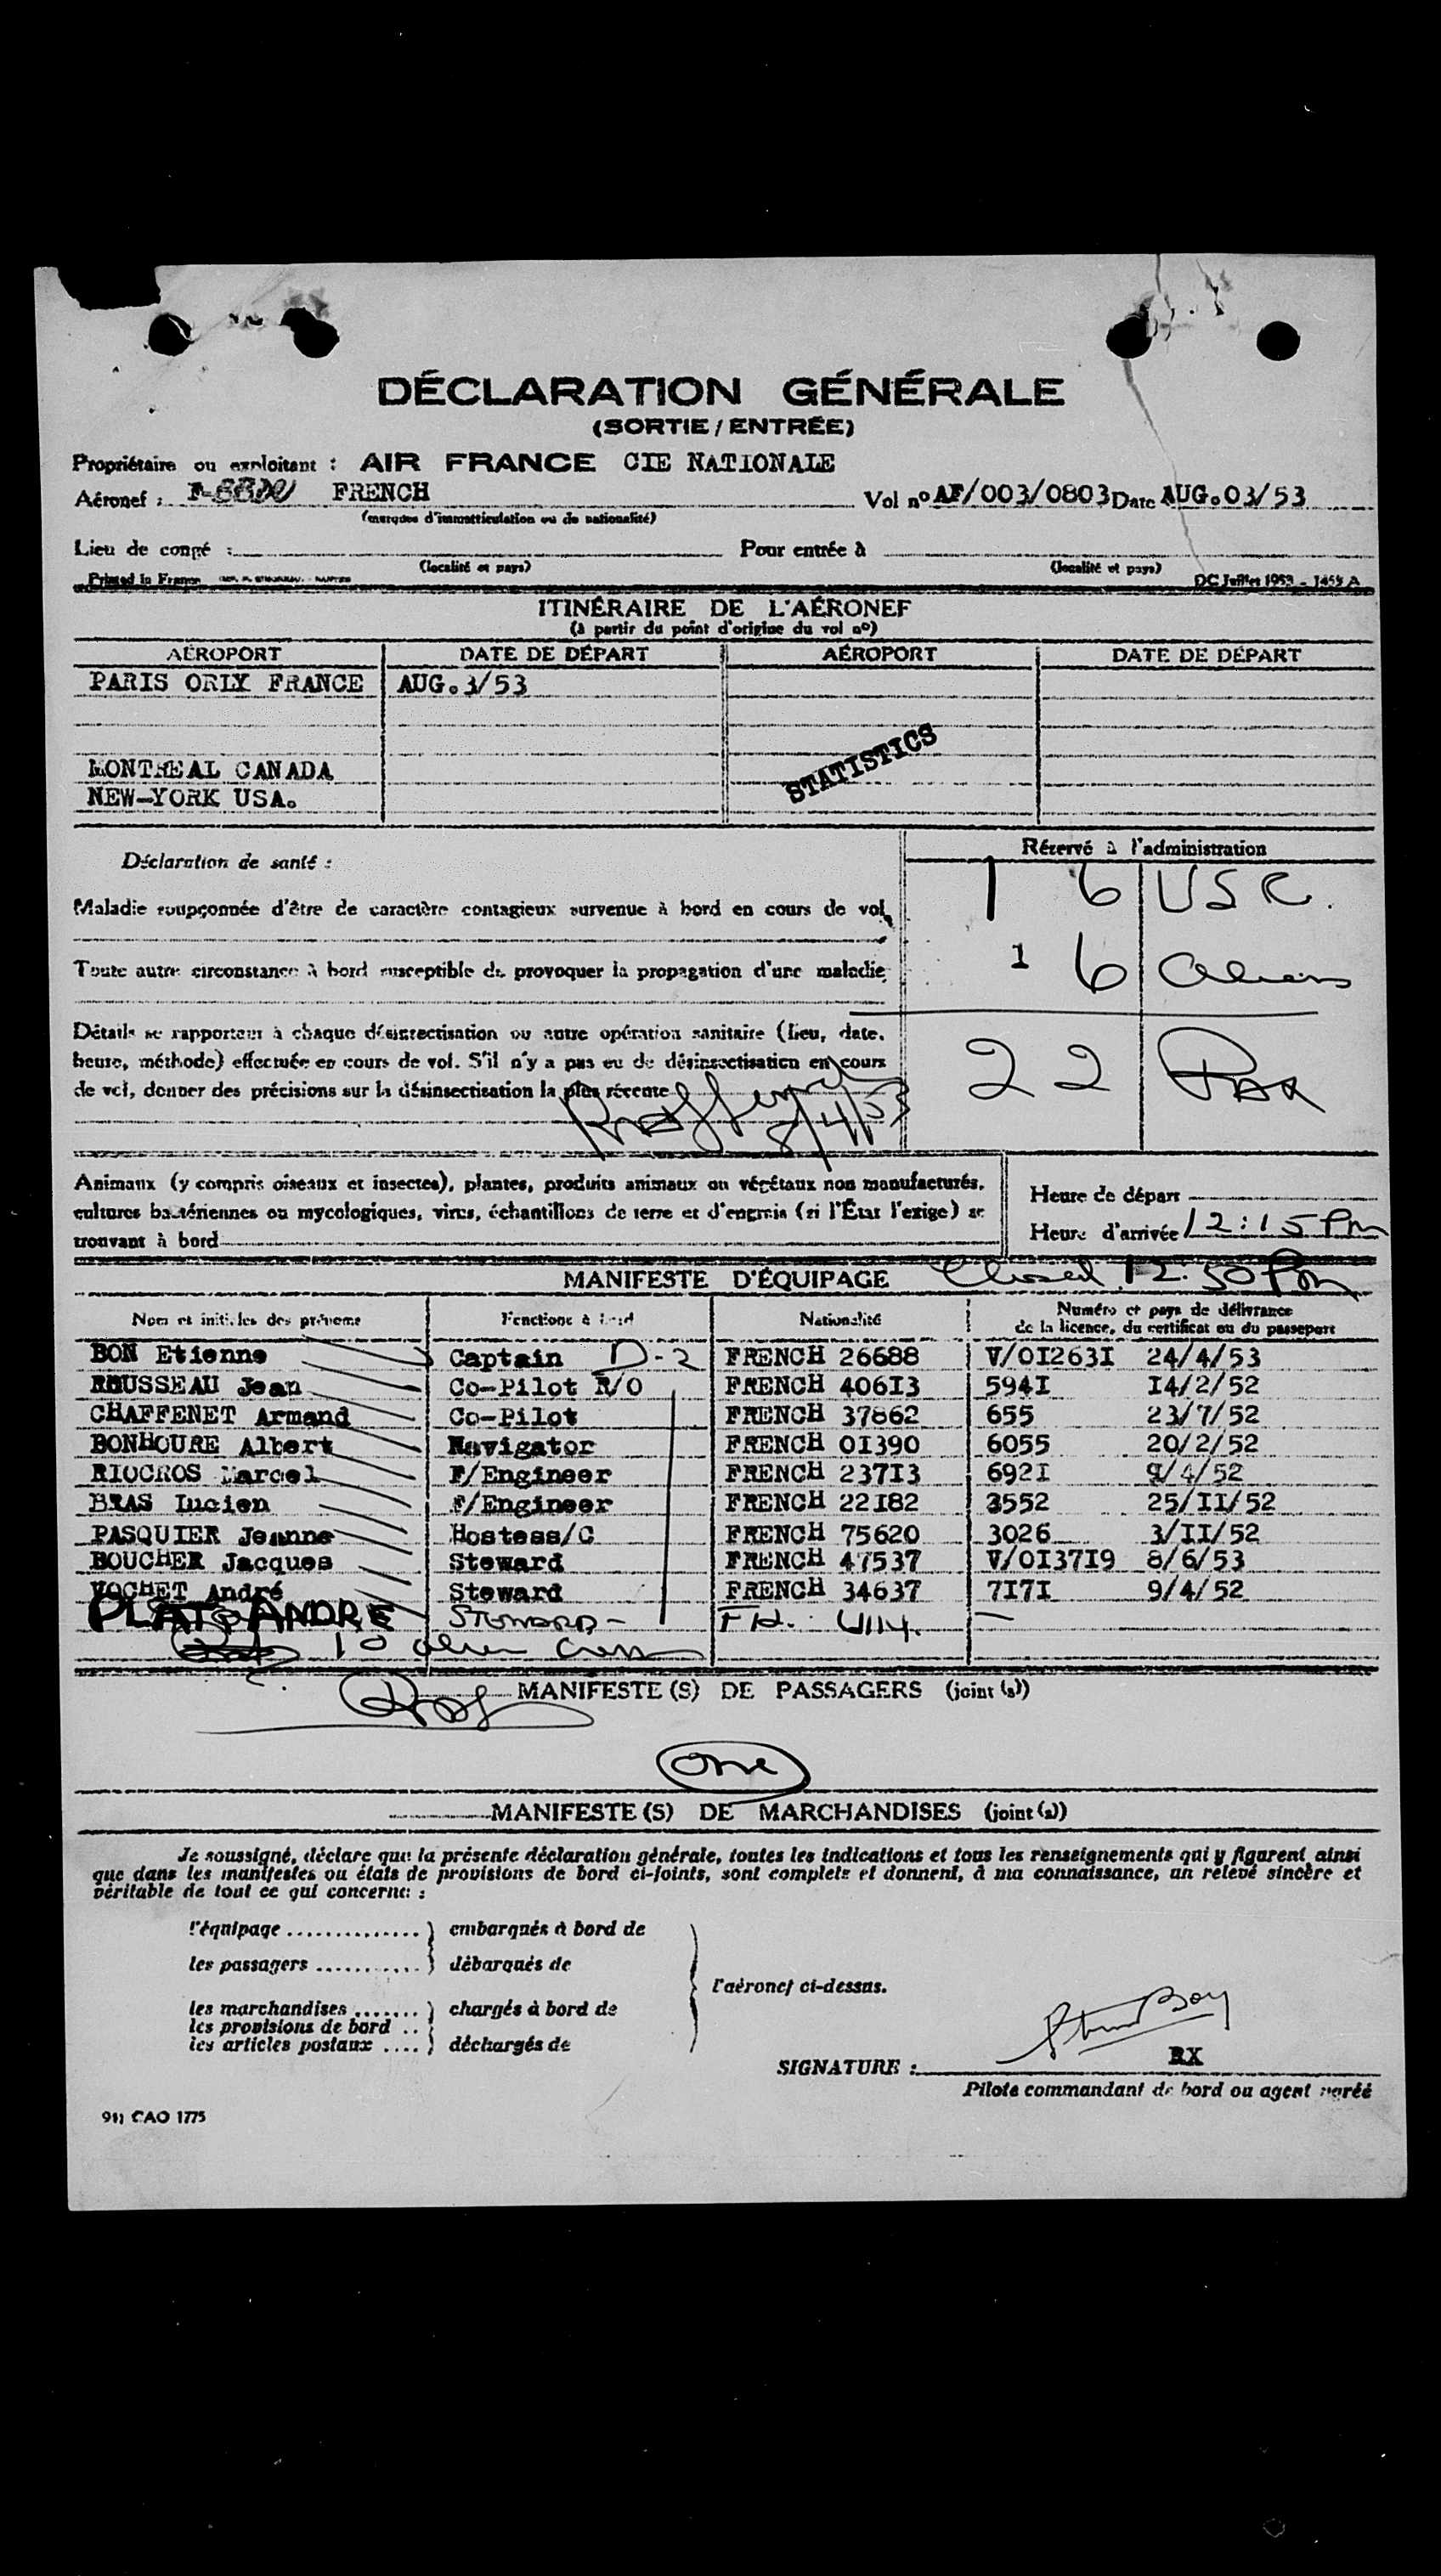 DÉCLARATION GÉNÉRALE
(SORTIE / ENTRÉE)
Propriétaire ou exploitant : AIR FRANCE CIE NATIONALE
Aéronef : FRENCH Vol nº AF/003/0803 Date AUG.03/53
(marques d'immatriculation ou de nationalité)
Lieu de congé : Pour entrée à
(localité et pays) (localité et pays)
Printed in France DC Juillet 1953 - 1455 A
ITINÉRAIRE DE L'AÉRONEF
(à partir du point d'origine du vol nº)
AÉROPORT DATE DE DÉPART AÉROPORT DATE DE DÉPART
PARIS ORLY FRANCE AUG.3/53
STATISTICS
MONTREAL CANADA
NEW-YORK USA.
Déclaration de santé : Réservé à l'administration
Maladie soupçonnée d'être de caractère contagieux survenue à bord en cours de vol, 1 6 USC.
Toute autre circonstance à bord susceptible de provoquer la propagation d'une maladie 1 6 Aliens
Détails se rapportant à chaque désinsectisation ou autre opération sanitaire (lieu, date,
heure, méthode) effectuée en cours de vol. S'il n'y a pas eu de désinsectisation en cours 22 Pax
de vol, donner des précisions sur la désinsectisation la plus récente
8/4/53
Animaux (y compris oiseaux et insectes), plantes, produits animaux ou végétaux non manufacturés,
cultures bactériennes ou mycologiques, virus, échantillons de terre et d'engrais (si l'État l'exige) se
trouvant à bord
Heure de départ
Heure d'arrivée 12:15 Pm
MANIFESTE D'ÉQUIPAGE Closed 12:50 Pm
Nom et initiales des prénoms Fonctions à bord Nationalité Numéro et pays de délivrance
de la licence, du certificat ou du passeport
BON Etienne Captain D-2 FRENCH 26688 V/OI263I 24/4/53
ROUSSEAU Jean Co-Pilot R/O FRENCH 406I3 594I I4/2/52
CHAFFENET Armand Co-Pilot FRENCH 37862 655 23/7/52
BONHOURE Albert Navigator FRENCH OI390 6055 20/2/52
RIOCROS Marcel F/Engineer FRENCH 237I3 692I 9/4/52
BRAS Lucien F/Engineer FRENCH 22I82 3552 25/II/52
PASQUIER Jeanne Hostess/C FRENCH 75620 3026 3/II/52
BOUCHER Jacques Steward FRENCH 47537 V/OI37I9 8/6/53
VOCHET André Steward FRENCH 34637 7I7I 9/4/52
PLAT ANDRE STEWARD - FR. 4114. —
10 alien crew
MANIFESTE(S) DE PASSAGERS (joint(s))
One
MANIFESTE(S) DE MARCHANDISES (joint(s))
Je soussigné, déclare que la présente déclaration générale, toutes les indications et tous les renseignements qui y figurent ainsi
que dans les manifestes ou états de provisions de bord ci-joints, sont complets et donnent, à ma connaissance, un relevé sincère et
véritable de tout ce qui concerne :
l'équipage .............. } embarqués à bord de
les passagers ........... } débarqués de
l'aéronef ci-dessus.
les marchandises ....... } chargés à bord de
les provisions de bord ..
les articles postaux .... } déchargés de
SIGNATURE : RX
Pilote commandant de bord ou agent agréé
911 CAO 1775